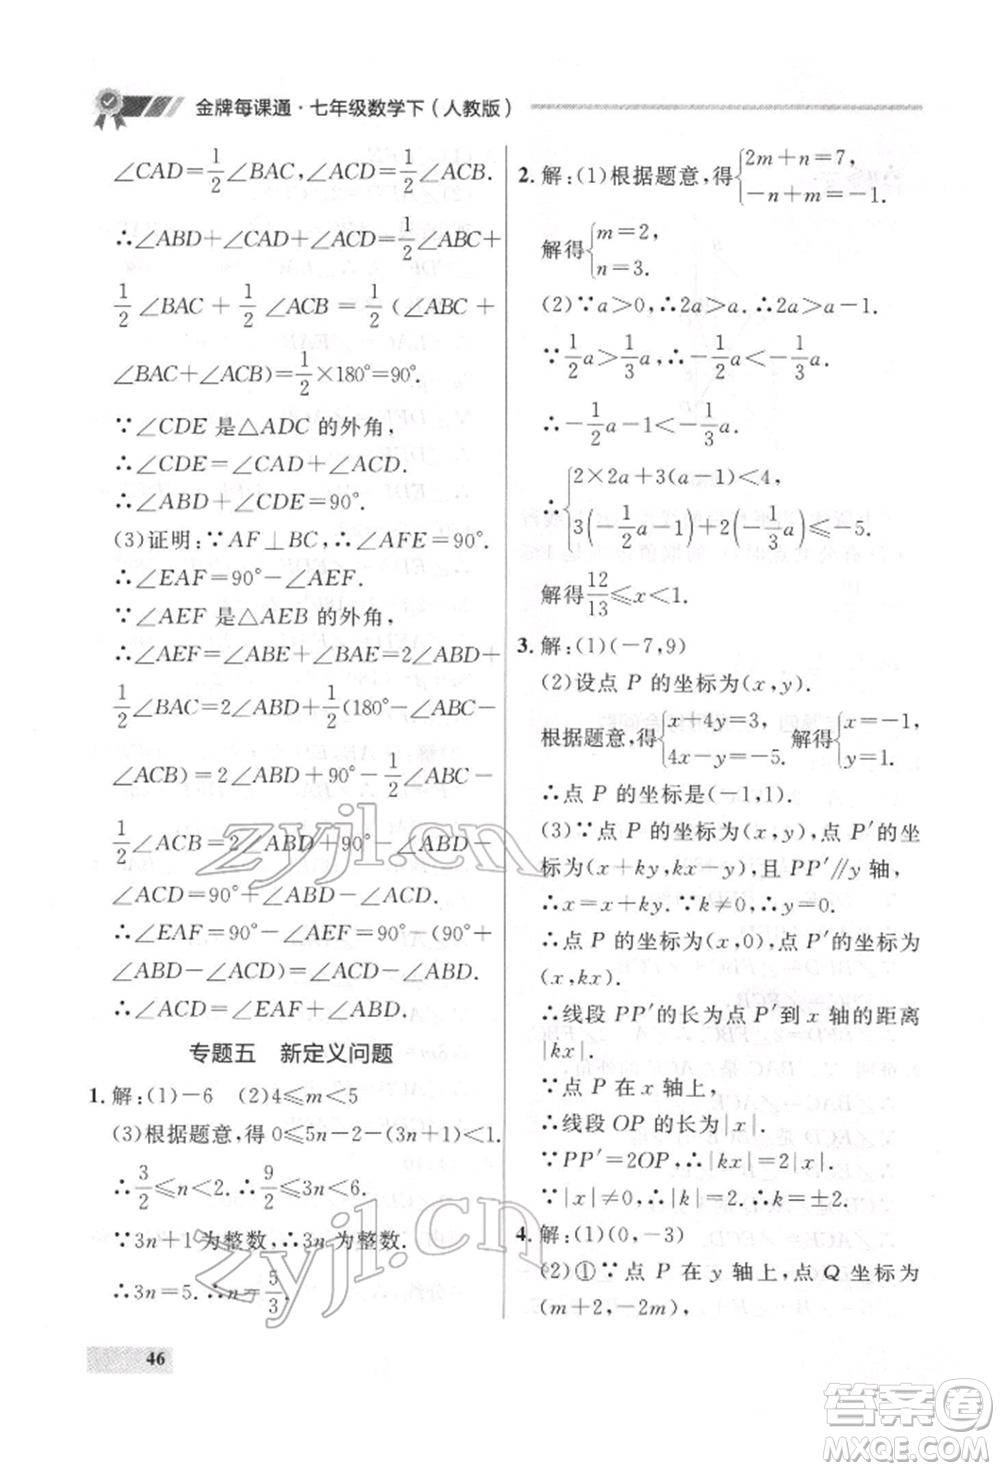 金牌每课通·七年级数学下(人教版)
∠CAD=1/2∠BAC,∠ACD=1/2∠ACB.
∴∠ABD+∠CAD+∠ACD=1/2∠ABC+
1/2∠BAC+1/2∠ACB=1/2(∠ABC+
∠BAC+∠ACB)=1/2×180°=90°.
∵∠CDE是△ADC的外角,
∴∠CDE=∠CAD+∠ACD.
∴∠ABD+∠CDE=90°.
(3)证明:∵AF⊥BC,∴∠AFE=90°.
∴∠EAF=90°-∠AEF.
∵∠AEF是△AEB的外角,
∴∠AEF=∠ABE+∠BAE=2∠ABD+
1/2∠BAC=2∠ABD+1/2(180°-∠ABC-
∠ACB)=2∠ABD+90°-1/2∠ABC-
1/2∠ACB=2∠ABD+90°-∠ABD-
∠ACD=90°+∠ABD-∠ACD.
∴∠EAF=90°-∠AEF=90°-(90°+
∠ABD-∠ACD)=∠ACD-∠ABD.
∴∠ACD=∠EAF+∠ABD.
专题五 新定义问题
1.解:(1)-6 (2)4≤m<5
(3)根据题意,得0≤5n-2-(3n+1)<1.
∴3/2≤n<2.∴9/2≤3n<6.
∵3n+1为整数,∴3n为整数.
∴3n=5.∴n=5/3.
2.解:(1)根据题意,得{2m+n=7,
-n+m=-1.
解得{m=2,
n=3.
(2)∵a>0,∴2a>a.∴2a>a-1.
∵1/2a>1/3a,∴-1/2a<-1/3a.
∴-1/2a-1<-1/3a.
∴{2×2a+3(a-1)<4,
3(-1/2a-1)+2(-1/3a)≤-5.
解得12/13≤x<1.
3.解:(1)(-7,9)
(2)设点P的坐标为(x,y).
根据题意,得{x+4y=3,
4x-y=-5. 解得{x=-1,
y=1.
∴点P的坐标是(-1,1).
(3)∵点P的坐标为(x,y),点P′的坐
标为(x+ky,kx-y),且PP′∥y轴,
∴x=x+ky.∵k≠0,∴y=0.
∴点P的坐标为(x,0),点P′的坐标为
(x,kx).
∴线段PP′的长为点P′到x轴的距离
|kx|.
∵点P在x轴上,
∴线段OP的长为|x|.
∵PP′=2OP,∴|kx|=2|x|.
∵|x|≠0,∴|k|=2.∴k=±2.
4.解:(1)(0,-3)
(2)①∵点P在y轴上,点Q坐标为
(m+2,-2m),
46
zyjl.cn
zyjl.cn
答案圈
MXQE.COM